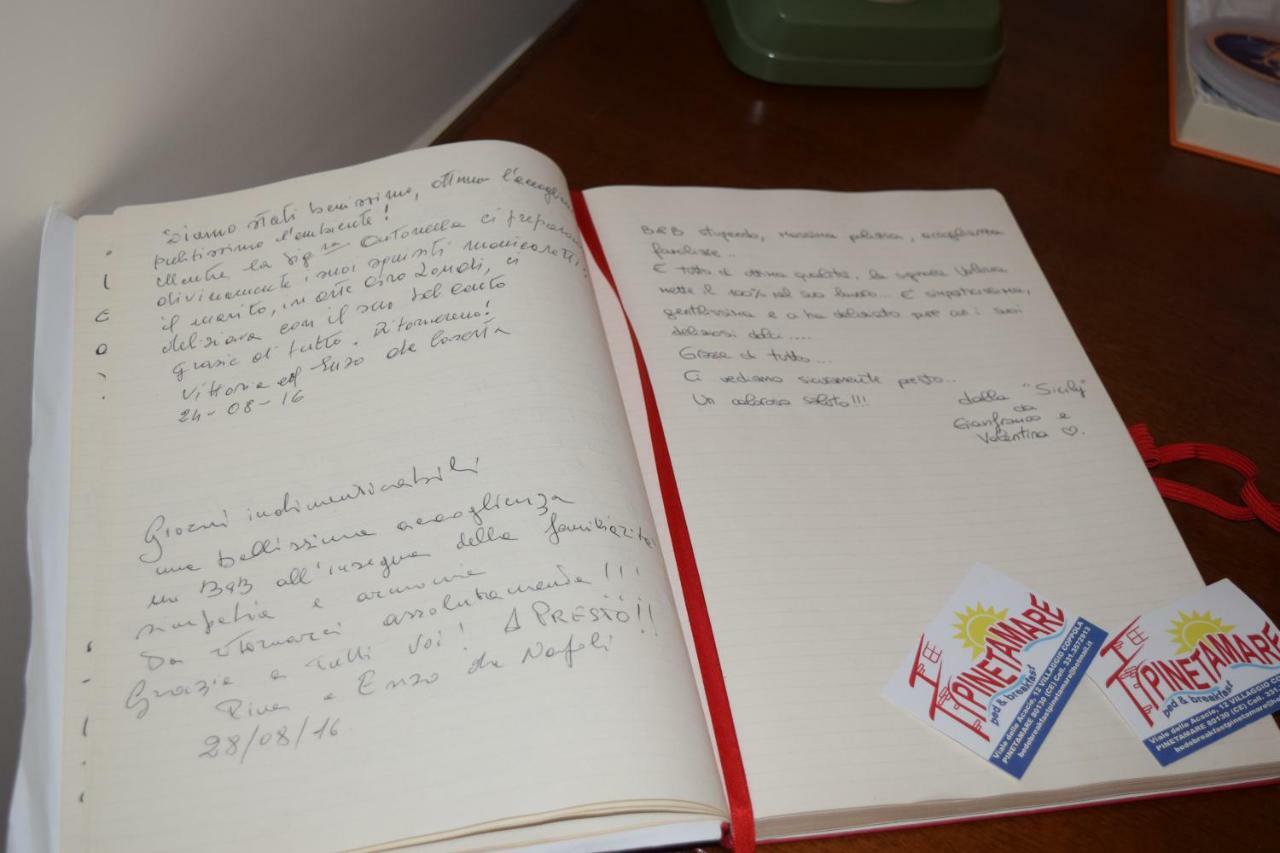 Siamo stati benissimo, ottima l'accoglien
pulitissimo l'ambiente!
Mentre la sig.ra Antonella ci preparava
divinamente i suoi squisiti manicaretti,
il marito, in arte Ciro Zondi, ci
deliziava con il suo bel canto
grazie di tutto. Ritorneremo!
Vittoria ed Enzo da Caserta
24-08-16
Giorni indimenticabili
una bellissima accoglienza
un B&B all'insegna della familiarità
simpatia e armonia
Da ritornarci assolutamente!!!
Grazie a tutti voi! A PRESTO!!
Pina e Enzo da Napoli
28/08/16
B&B stupendo, massima pulizia, accoglienza
favolosa..
E tutto di ottima qualità. la signora Valeria
mette il 100% nel suo lavoro... E simpaticissima,
gentilissima e ci ha deliziato per coi i suoi
deliziosi dolci....
Grazie di tutto...
Ci vediamo sicuramente presto...
Un caloroso saluto!!!
dalla "Sicily"
da
Gianfranco e
Valentina ♡.
PINETAMARE
bed & breakfast
Viale delle Acacie, 12 VILLAGGIO COPPOLA
PINETAMARE 80130 (CE) Cell. 331.3572913
bedebreakfastpinetamare@hotmail.it
PINETAMARE
bed & breakfast
Viale delle Acacie, 12 VILLAGGIO
PINETAMARE 80130 (CE) Cell. 331
bedebreakfastpinetamare@ho